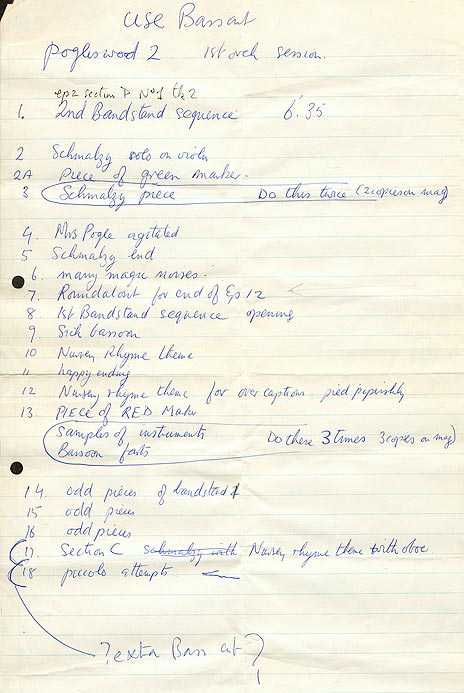 use Bass cut
Pogleswood 2 1st orch session.
ep 2 section D No 1 tk 2
1. 2nd Bandstand sequence 6'.35
2 Schmalzy solo on violin
2A Piece of green marker.
3 Schmalzy piece Do this twice (2 copies on mag)
4. Mrs Pogle agitated
5 Schmalzy end
6. many magic noises.
7. Roundabout for end of Ep 12
8 1st Bandstand sequence opening
9. Sick bassoon
10 Nursery Rhyme theme
11 happy ending
12 Nursery rhyme theme for over captions
13. PIECE of RED Maker
Samples of instruments Do there 3 times 3 copies on mag)
Bassoon farts
14. odd pieces of bandstand
15 odd pieces
16 odd pieces
17. Section C schmalzy with Nursery rhyme theme with oboe
18 piccolo attempts
? exta Bass cut ?